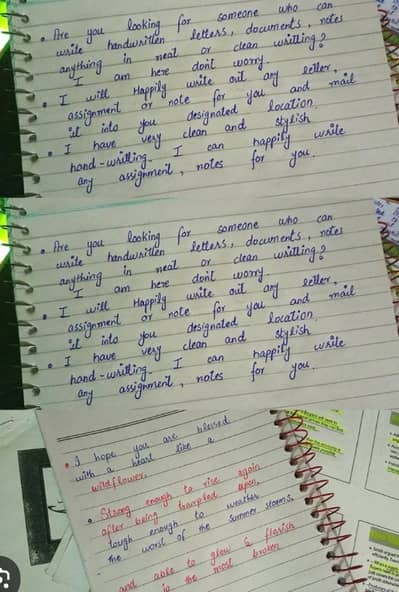 • Are you looking for someone who can
write handwritten letters, documents, notes
anything in neat or clean writting?
I am here don't worry.
• I will Happily write out any letter,
assignment or note for you and mail
it into you designated location.
• I have very clean and stylish
hand-writting. I can happily write
any assignment, notes for you.
• Are you looking for someone who can
write handwritten letters, documents, notes
anything in neat or clean writting?
I am here don't worry.
• I will Happily write out any letter,
assignment or note for you and mail
it into you designated location.
• I have very clean and stylish
hand-writting. I can happily write
any assignment, notes for you.
• I hope you are blessed
with a heart like a
wildflower.
• Strong enough to rise again
after being trampled upon,
tough enough to weather
the worst of the summer storms,
and able to glow & florish
in the most broken